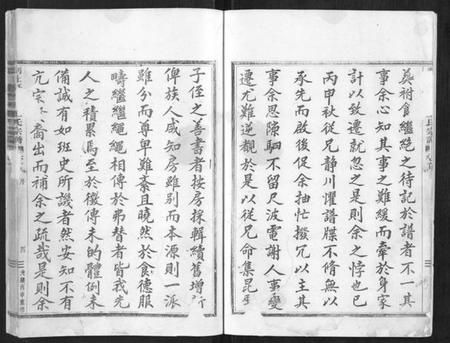 葬祔食繼絶之待記於譜者不一其
事余心知其事之難緩而牽於身家
計以致遷就忽之是則余之悖也已
丙申秋從兄靜川懼譜牒不脩無以
承先而啟後促余抽忙撥冗以主其
事余思陳駟不留尺波電謝人事變
遷尤難逆覩於是以從兄命集昆
子侄之善書者按房採輯續舊增
俾族人咸知房雖別而本源則一派
雖分而尊卑難紊且曉然於食德服
疇繼繼繩繩相傳於弗替者皆我先
人之積累焉至於徽傳未的體例未
備誠有如班史所譏者然安知不有
亢宗 裔出而補余之疏哉是則余